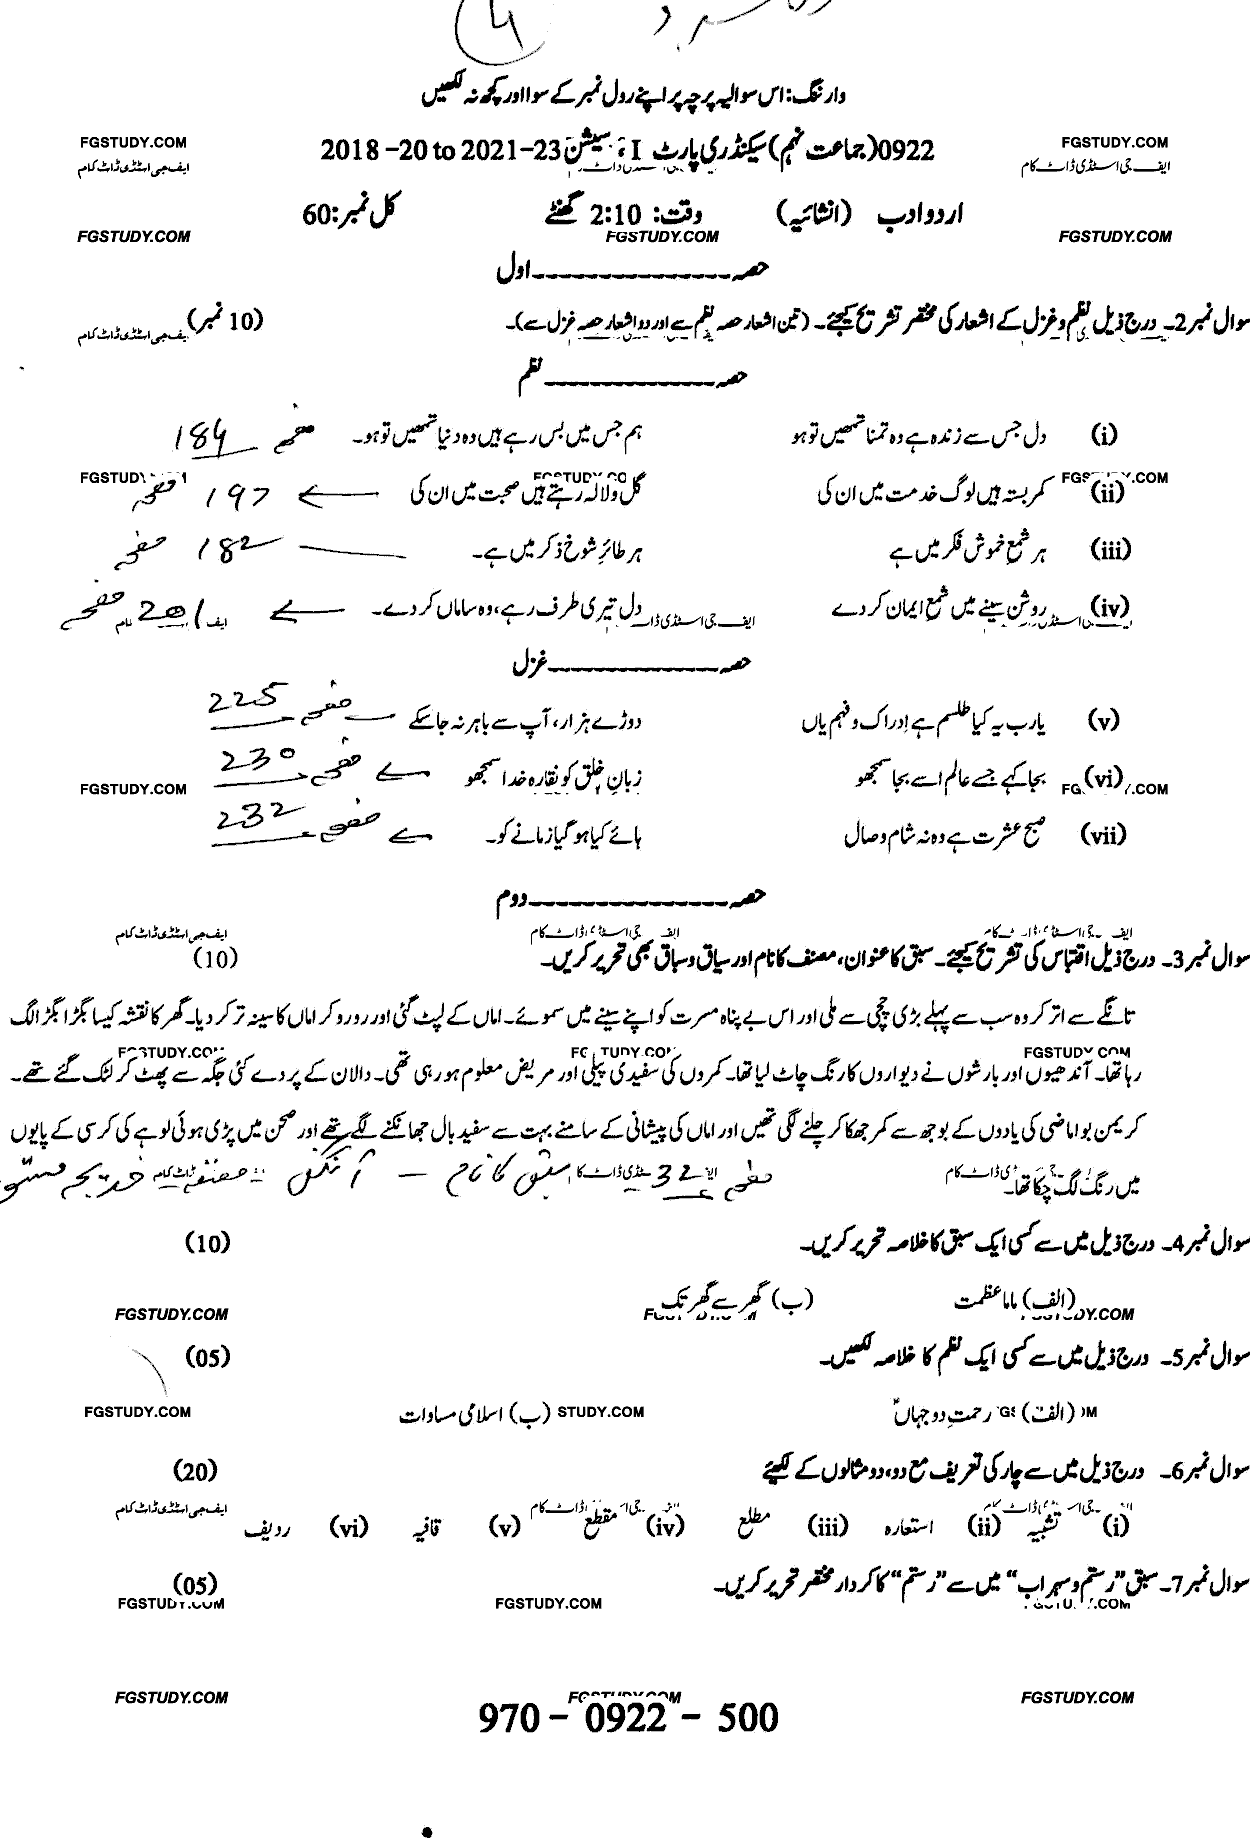 وارننگ: اس سوالیہ پرچہ پر اپنے رول نمبر کے سوا اور کچھ نہ لکھیں
FGSTUDY.COM 0922(جماعت نہم) سیکنڈری پارٹ I ، سیشن 2018 -20 to 2021-23 FGSTUDY.COM
ایف جی اسٹڈی ڈاٹ کام ایف جی اسٹڈی ڈاٹ کام
اردو ادب (انشائیہ) وقت: 2:10 گھنٹے کل نمبر: 60
FGSTUDY.COM FGSTUDY.COM FGSTUDY.COM
حصہ ---------------اول
سوال نمبر 2۔ درج ذیل نظم و غزل کے اشعار کی مختصر تشریح کیجئے۔ (تین اشعار حصہ نظم سے اور دو اشعار حصہ غزل سے)۔ (10 نمبر)
ایف جی اسٹڈی ڈاٹ کام
حصہ ---------------نظم
(i) دل جس سے زندہ ہے وہ تمنا تمھیں تو ہو ہم جس میں بس رہے ہیں وہ دنیا تمھیں تو ہو۔ صفحہ 184
FGSTUDY.COM
(ii) کمر بستہ ہیں لوگ خدمت میں ان کی گل و لالہ رہتے ہیں صحبت میں ان کی 197 صفحہ
(iii) ہر شمع خموش فکر میں ہے ہر طائرِ شوخ ذکر میں ہے۔ 182 صفحہ
(iv) روشن سینے میں شمع ایمان کر دے دل تیری طرف رہے، وہ ساماں کر دے۔ 201 صفحہ
حصہ ---------------غزل
(v) یارب یہ کیا طلسم ہے اِدراک و فہم یاں دوڑے ہزار، آپ سے باہر نہ جا سکے صفحہ 225
(vi) بجا کہے جسے عالم اسے بجا سمجھو زبانِ خلق کو نقارہ خدا سمجھو صفحہ 230
FGSTUDY.COM
(vii) صبح عشرت ہے وہ نہ شام وصال ہائے کیا ہو گیا زمانے کو۔ صفحہ 232
حصہ ---------------دوم
ایف جی اسٹڈی ڈاٹ کام
سوال نمبر 3۔ درج ذیل اقتباس کی تشریح کیجئے۔ سبق کا عنوان، مصنف کا نام اور سیاق و سباق بھی تحریر کریں۔ (10)
تانگے سے اتر کر وہ سب سے پہلے بڑی چچی سے ملی اور اس بے پناہ مسرت کو اپنے سینے میں سموئے۔ اماں کے لپٹ گئی اور رو رو کر اماں کا سینہ تر کر دیا۔ گھر کا نقشہ کیسا بگڑا بگڑا لگ
FGSTUDY.COM
رہا تھا۔ آندھیوں اور بارشوں نے دیواروں کا رنگ چاٹ لیا تھا۔ کمروں کی سفیدی پیلی اور مریض معلوم ہو رہی تھی۔ دالان کے پردے کئی جگہ سے پھٹ کر لٹک گئے تھے۔
کریمن بوا ماضی کی یادوں کے بوجھ سے کمر جھکا کر چلنے لگی تھیں اور اماں کی پیشانی کے سامنے بہت سے سفید بال جھانکنے لگے تھے اور صحن میں پڑی ہوئی لوہے کی کرسی کے پایوں
میں رنگ لگ چکا تھا۔ صفحہ 32 سبق کا نام - آنگن مصنفہ خدیجہ مستور
سوال نمبر 4۔ درج ذیل میں سے کسی ایک سبق کا خلاصہ تحریر کریں۔ (10)
(الف) ماما عظمت (ب) گھر سے گھر تک
FGSTUDY.COM
سوال نمبر 5۔ درج ذیل میں سے کسی ایک نظم کا خلاصہ لکھیں۔ (05)
(الف) رحمتِ دو جہاںؐ (ب) اسلامی مساوات
FGSTUDY.COM
سوال نمبر 6۔ درج ذیل میں سے چار کی تعریف مع دو، دو مثالوں کے لکھیئے (20)
ایف جی اسٹڈی ڈاٹ کام
(i) تشبیہ (ii) استعارہ (iii) مطلع (iv) مقطع (v) قافیہ (vi) ردیف
سوال نمبر 7۔ سبق "رستم و سہراب" میں سے "رستم" کا کردار مختصر تحریر کریں۔ (05)
FGSTUDY.COM FGSTUDY.COM
FGSTUDY.COM FGSTUDY.COM FGSTUDY.COM
970 – 0922 – 500